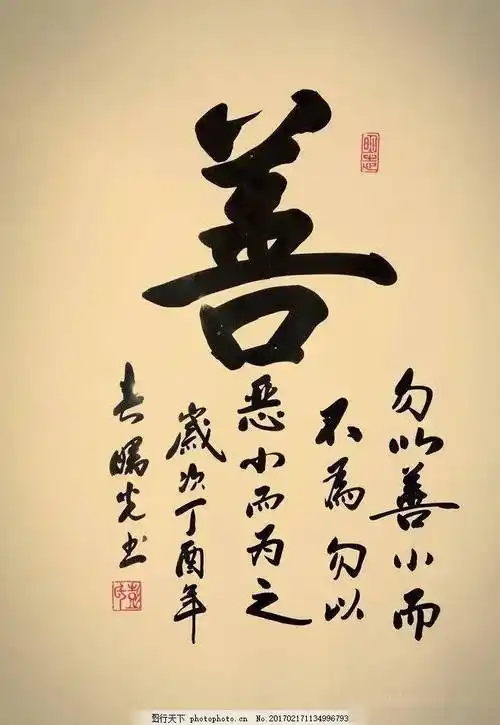 善
勿以善小而
不為勿以
恶小而为之
歲次丁酉年
春 光书
明志
图行天下 photophoto.cn No.201702171134996793